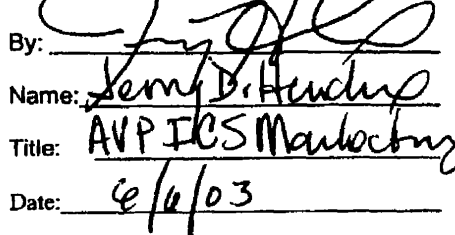 By:
Name: Jerry D. Hendrix
Title: AVP ICS Marketing
Date: 6/6/03